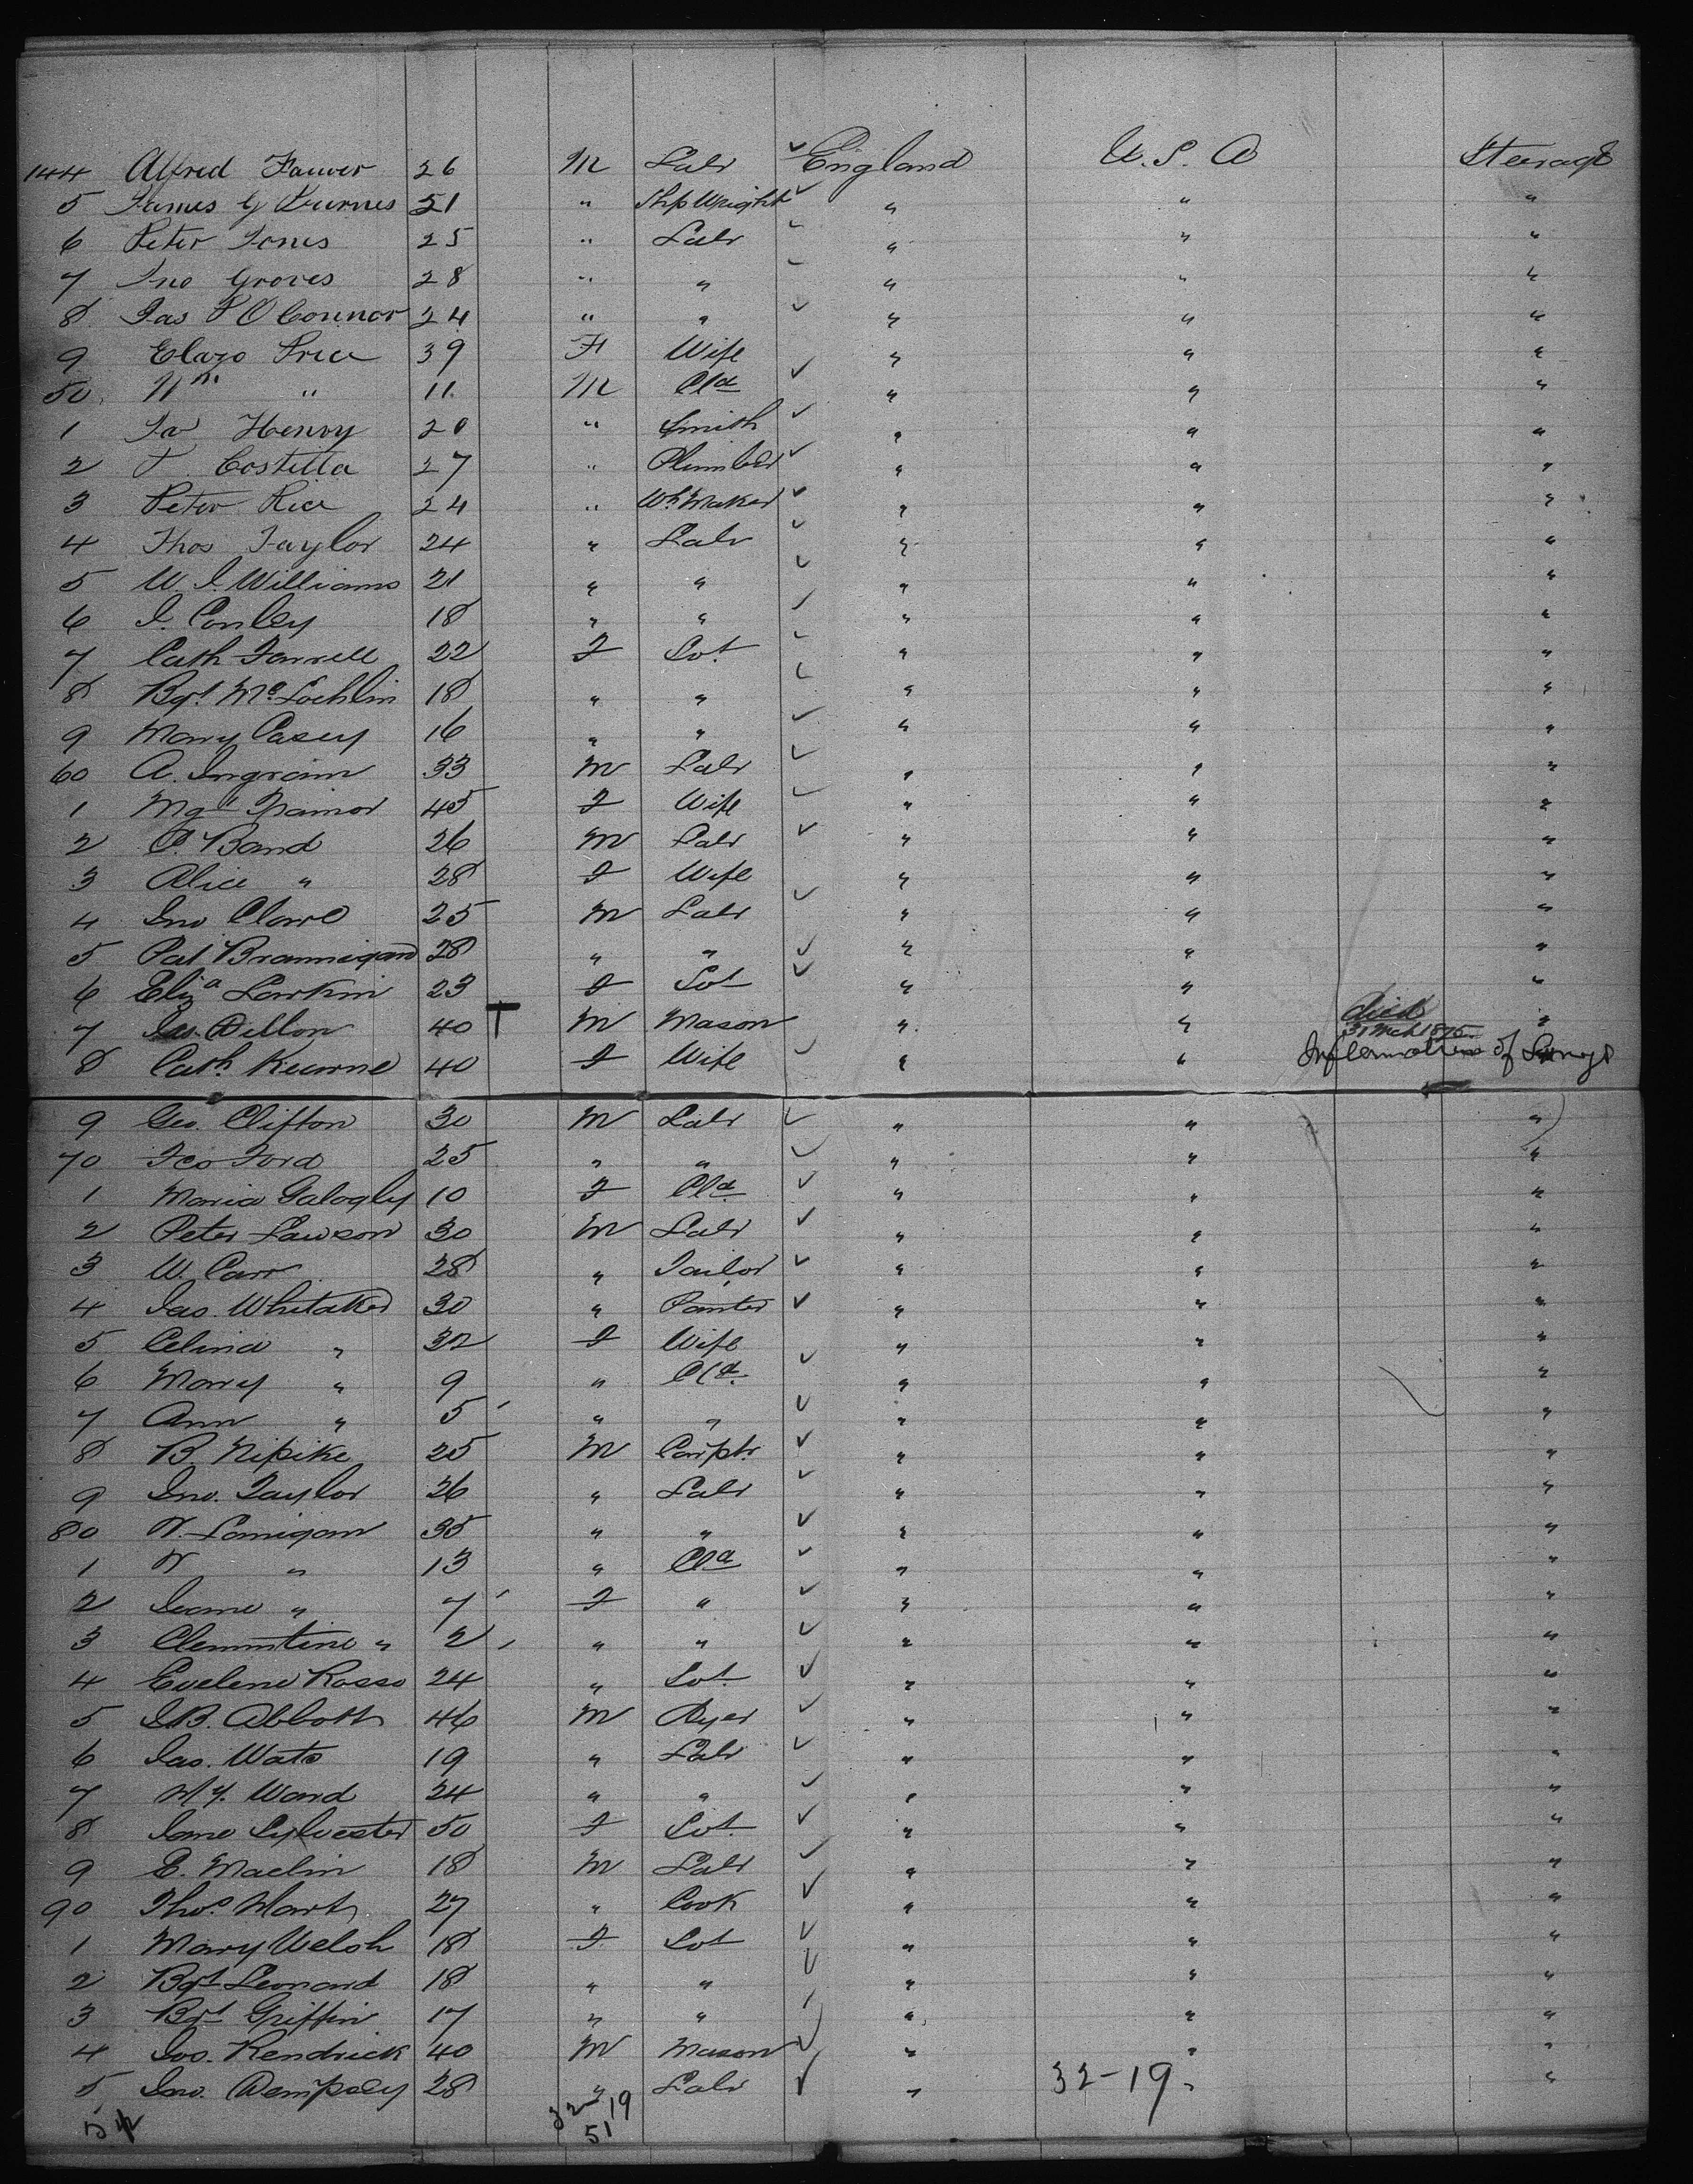 144 Alfred 26 M Labr ✓ England U.S.A Steerage
5 James G 51 " Shp Wright ✓ " " "
6 Peter Jones 25 " Labr ✓ " " "
7 Jno Groves 28 " " ✓ " " "
8 Jas P O Connor 24 " " ✓ " " "
9 Price 39 F Wife " " "
50 Wm " 11 M Cld ✓ " " "
1 Henry 20 " Smith ✓ " " "
2 Costilla 27 " Plumber ✓ " " "
3 Peter Rice 24 " Wh. Maker ✓ " " "
4 Thos Taylor 24 " Labr ✓ " " "
5 W. J. Williams 21 " " ✓ " " "
6 J. Conley 18 " " ✓ " " "
7 Cath Farrell 22 F " " "
8 Bgt. McLochlin 18 " " ✓ " " "
9 Mary Casey 16 " " ✓ " " "
60 A. Ingram 33 M Labr ✓ " " "
1 Mgt 45 F Wife ✓ " " "
2 Band 26 M Labr ✓ " " "
3 Alice " 28 F Wife " " "
4 Jno Clare 25 M Labr ✓ " " "
5 Pat Brannigan 28 " " ✓ " " "
6 Eliza Larkin 23 F ✓ " " "
7 Dillon 40 T M Mason " " Died 31 Mch 1875 "
8 Cath. Kearne 40 F Wife ✓ " " Inflamation of Lungs
9 Geo. Clifton 30 M Labr ✓ " " "
70 Ford 25 " " ✓ " " "
1 Maria Galogly 10 F Cld ✓ " " "
2 Peter Lawson 30 M Labr ✓ " " "
3 W. Carr 28 " Tailor ✓ " " "
4 Jas. Whitaker 30 " Panter ✓ " " "
5 Celina " 32 F Wife " " "
6 Mary " 9 " Cld ✓ " " "
7 Ann " 5 " " ✓ " " "
8 B. Nipike 25 M Carptr. ✓ " " "
9 Jno. Taylor 26 " Labr ✓ " " "
80 Lanigan 35 " " ✓ " " "
1 " 13 " Cld ✓ " " "
2 " 7 F " ✓ " " "
3 Clemmtine " 2 " " ✓ " " "
4 Evelene Rosso 24 " ✓ " " "
5 J.B. Abbott 46 M Dyer ✓ " " "
6 Jas. Wats 19 " Labr ✓ " " "
7 Ward 24 " " ✓ " " "
8 Jane Sylvester 50 F ✓ " " "
9 E. Maclin 18 M Labr ✓ " " "
90 Thos. Hart 27 " Cook ✓ " " "
1 Mary Welsh 18 F ✓ " " "
2 Bgt Leonard 18 " " ✓ " " "
3 Bgt Griffin 17 " " ✓ " " "
4 Jos. Kendrick 40 M Mason ✓ " " "
5 Jno. Dempsey 28 " Labr ✓ " 32-19 " "
32 19
51